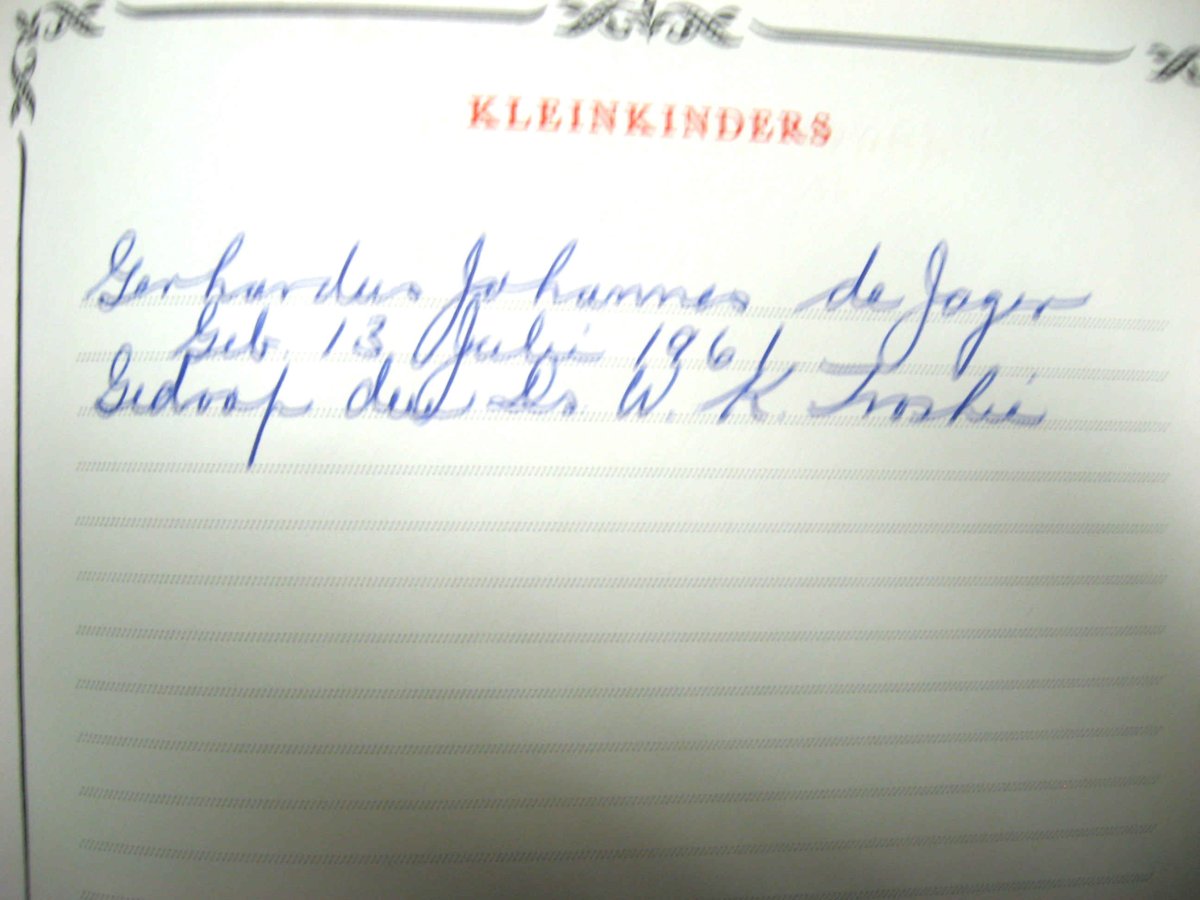 KLEINKINDERS
Gerhardus Johannes de Jager
Geb. 13 Julie 1961
Gedoop deur Ds. W. K. Troskie